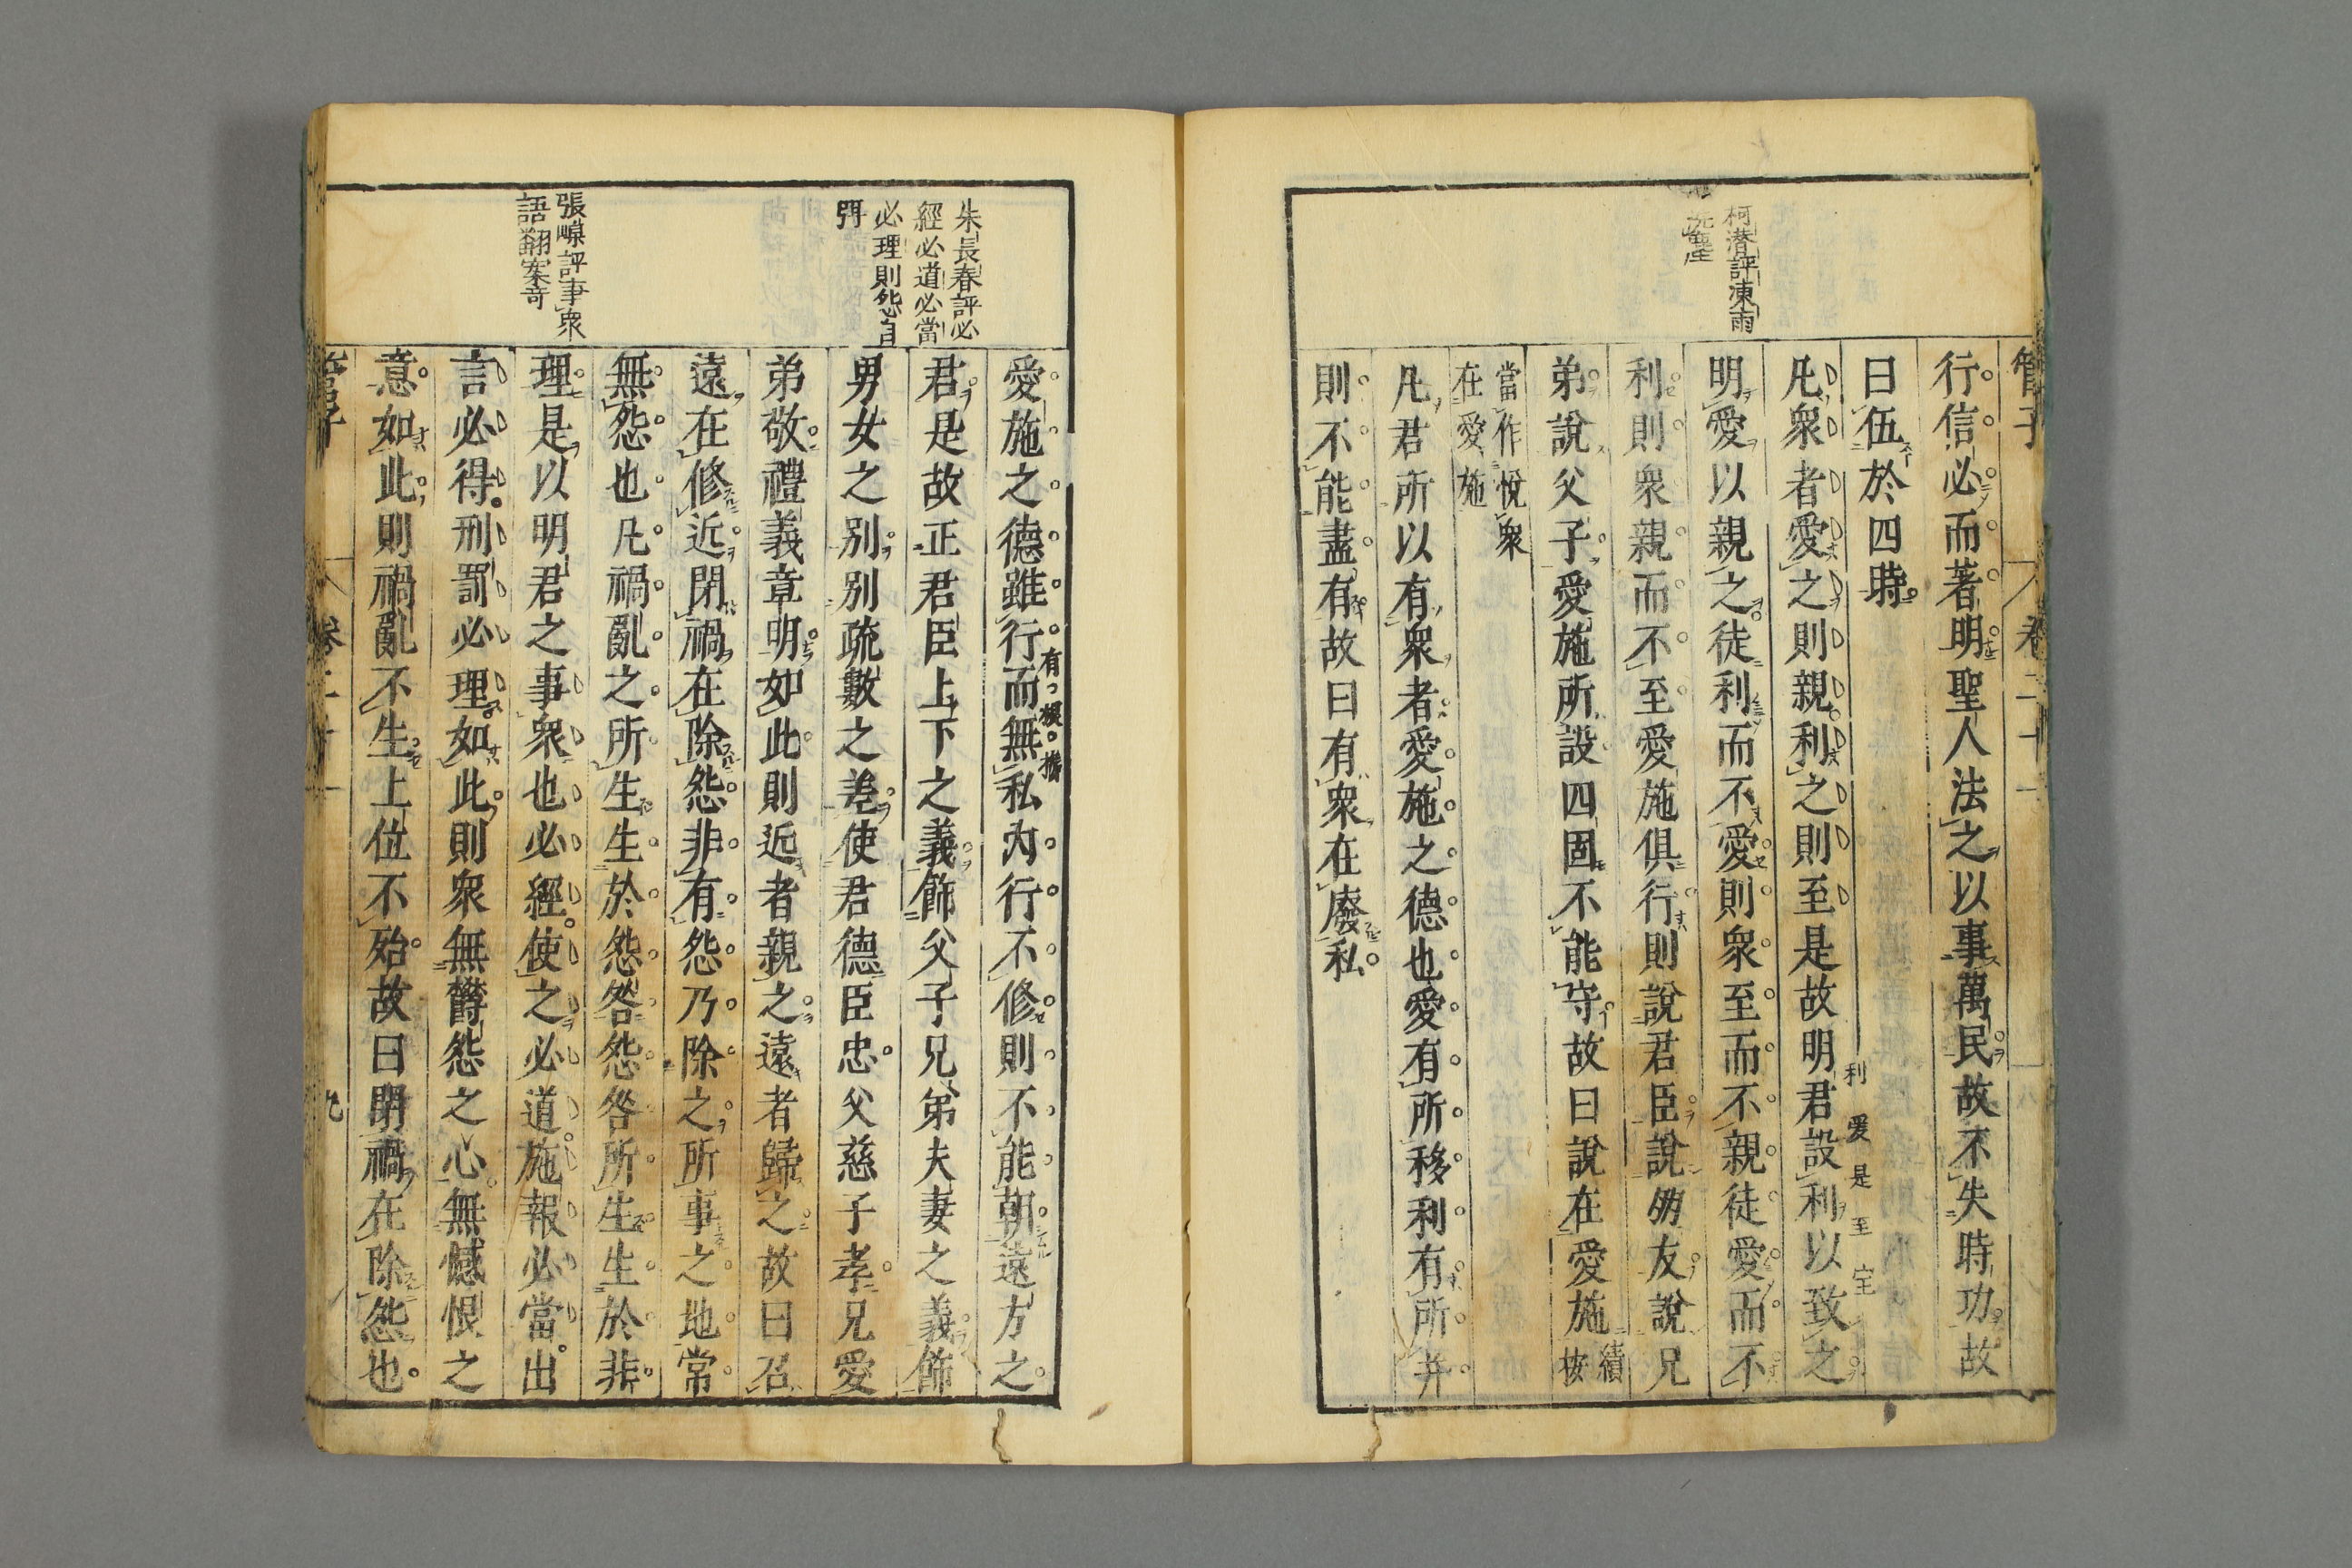 管子
卷二十一
柯潜評凍雨
洗塵
行信必而著明聖人法之以事萬民故不失時功故
曰伍於四時
凡衆者愛之則親利之則至是故明君設利以致之
利 愛 是 至 宝
明愛以親之徒利而不愛則衆至而不親徒愛而不
利則衆親而不至愛施俱行則說君臣說朋友說兄
弟說父子愛施所設四固不能守故曰說在愛施續按
當作悅衆
在愛施
凡君所以有衆者愛施之德也愛有所移利有所并
則不能盡有故曰有衆在廢私
朱長春評必
經必道必當
必理則怨自
弭
愛施之德雖行而無私內行不修則不能朝遠方之
君是故正君臣上下之義飾父子兄弟夫妻之義飾
男女之別別疏數之差使君德臣忠父慈子孝兄愛
弟敬禮義章明如此則近者親之遠者歸之故曰召
遠在修近閉禍在除怨非有怨乃除之所事之地常
無怨也凡禍亂之所生生於怨咎怨咎所生生於非
張嵲評事衆
語翻案奇
理是以明君之事衆也必經使之必道施報必當出
言必得刑罰必理如此則衆無鬱怨之心無憾恨之
意如此則禍亂不生上位不殆故曰閉禍在除怨也
管子
卷二十一
九